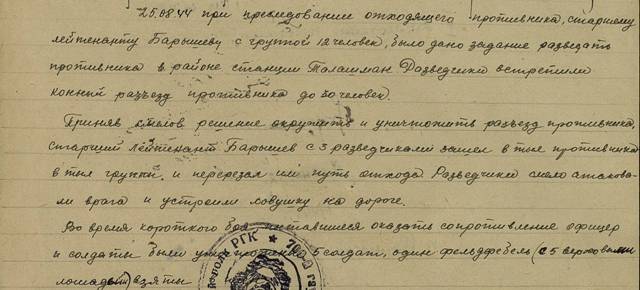 25.08.44 при преследование отходящего противника, старшему
лейтенанту Барышеву с группой 12 человек, было дано задание разведать
противника в районе станции Талашман Разведчики встретили
конный разъезд противника до 50 человек.
Приняв смелов решение окружить и уничтожить разъезд противника
старший лейтенант Барышев с 3 разведчиками зашел в тыл противника
в тыл группы и перерезал им путь отхода Разведчики смело атакова-
ли врага и устроили ловушку на дороге.
Во время короткого боя пытавшиеся оказать сопротивление офицер
и солдаты были 5 солдат, один фельдфебель (с 5 верховыми
лошадьми) взяты
РГК ★